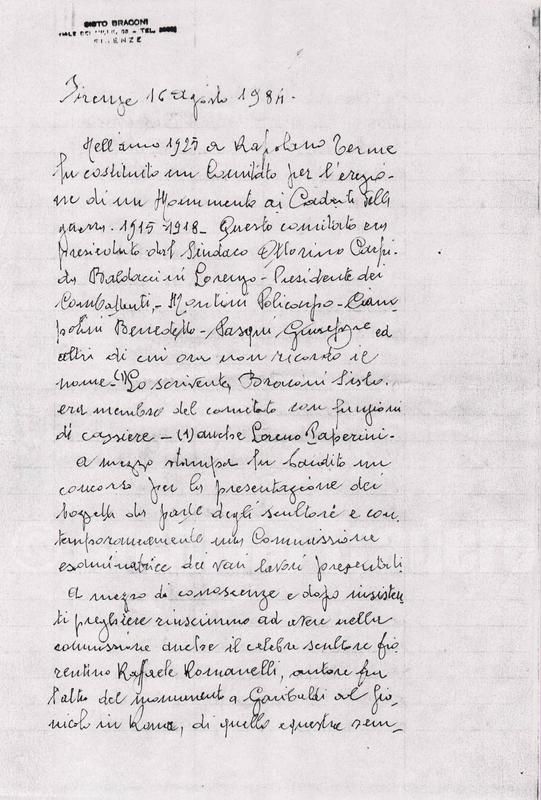 SISTO BRACONI
VIALE DEI MILLE, - TEL.
FIRENZE
Firenze 16 Agosto 1984.
Nell'anno 1925 a Rapolano Terme
fu costituito un Comitato per l'erezio-
ne di un Monumento ai Caduti della
guerra. 1915-1918 - Questo comitato era
presieduto dal Sindaco Ottorino Carpi.
da Baldaccini Lorenzo - Presidente dei
Combattenti, - Montoni Policarpo - Ciam-
polini Benedetto - Pasqui Giuseppe ed
altri di cui ora non ricordo il
nome. (1) Lo scrivente, Braconi Sisto.
era membro del comitato con funzioni
di cassiere - (1) anche Loreno Paperini -
A mezzo stampa fu bandito un
concorso per la presentazione dei
bozzetti da parte degli scultori e con
temporaneamente una Commissione
esaminatrice dei vari lavori presentati.
A mezzo di conoscenze e dopo insisten
ti preghiere riuscimmo ad avere nella
commissione anche il celebre scultore fio
rentino Raffaele Romanelli, autore fra
l'altro del monumento a Garibaldi al Gia-
nicolo in Roma, di quello equestre sem-